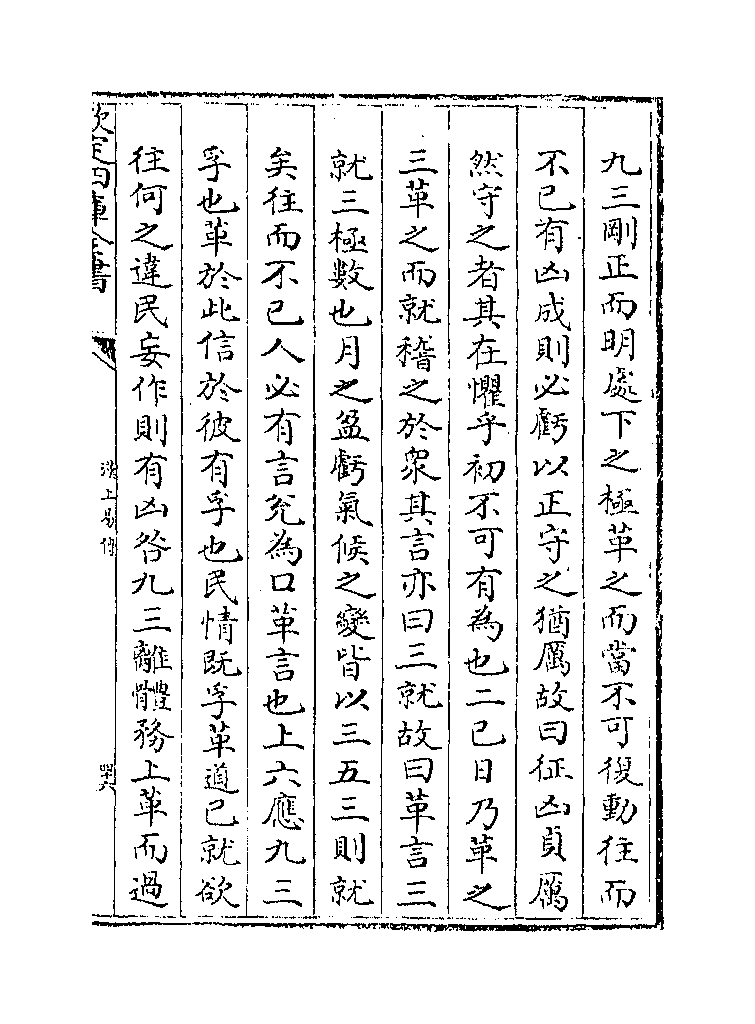 九三剛正而明處下之極革之而當不可復動往而
不已有凶成則必虧以正守之猶厲故曰征凶貞厲
然守之者其在懼乎初不可有為也二已日乃革之
三革之而就稽之於衆其言亦曰三就故曰革言三
就三極數也月之盈虧氣候之變皆以三五三則就
矣往而不已人必有言兊為口革言也上六應九三
孚也革於此信於彼有孚也民情既孚革道已就欲
往何之違民妄作則有凶咎九三離體務上革而過
欽定四庫全書
漢上易傳
四六